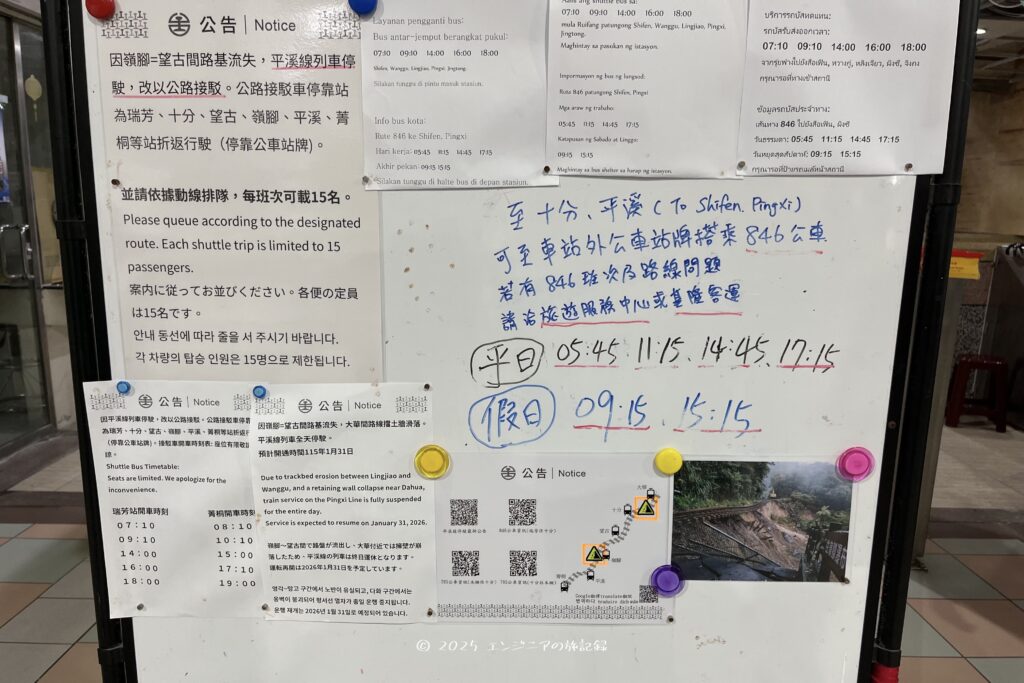 公告 | Notice
因嶺腳=望古間路基流失，平溪線列車停
駛，改以公路接駁。公路接駁車停靠站
為瑞芳、十分、望古、嶺腳、平溪、菁
桐等站折返行駛（停靠公車站牌)。
並請依據動線排隊，每班次可載15名。
Please queue according to the designated
route. Each shuttle trip is limited to 15
passengers.
案内に従ってお並びください。各便の定員
は15名です。
안내 동선에 따라 줄을 서 주시기 바랍니다.
각 차량의 탑승 인원은 15명으로 제한됩니다.
Layanan pengganti bus:
Bus antar-jemput berangkat pukul:
07:10 09:10 14:00 16:00 18:00
Shifen, Wanggu, Lingjiao, Pingxi, Jingtong.
Silakan tunggu di pintu masuk stasiun.
Info bus kota:
Rute 846 ke Shifen, Pingxi
Hari kerja: 05:45 11:15 14:45 17:15
Akhir pekan: 09:15 15:15
Silakan tunggu di halte bus di depan stasiun.
07:10 09:10 14:00 16:00 18:00
mula Ruifang patungong Shifen, Wanggu, Lingjiao, Pingxi,
Jingtong.
Maghintay sa pasukan ng istasyon.
Impormasyon ng bus ng lungsod:
Ruta 846 patungong Shifen, Pingxi
Mga araw ng trabaho:
05:45 11:15 14:45 17:15
Katapusan ng Sabado at Linggo:
09:15 15:15
Maghintay sa bus shelter sa harap ng istasyon.
บริการรถบัสทดแทน:
รถบัสรับส่งออกเวลา:
07:10 09:10 14:00 16:00 18:00
จากรุ่ยฟางไปยังสือเฟิน, หวางกู่, หลิงเจียว, ผิงซี, จิงถง
กรุณารอที่ทางเข้าสถานี
ข้อมูลรถบัสประจำทาง:
เส้นทาง 846 ไปยังสือเฟิน, ผิงซี
วันธรรมดา: 05:45 11:15 14:45 17:15
วันหยุดสุดสัปดาห์: 09:15 15:15
กรุณารอที่ป้ายรถเมล์หน้าสถานี
至十分、平溪(To Shifen. Pingxi)
可至車站外公車站牌搭乘846公車
若有846班次及路線問題
請洽旅遊服務中心或基隆客運
平日 05:45、11:15、14:45、17:15
假日 09:15、15:15
公告 | Notice
因平溪線列車停駛，改以公路接駁，公路接駁車停靠
為瑞芳、十分、望古、嶺腳、平溪、菁桐等站折返行
（停靠公車站牌)，接駁車開車時刻表: 座位有限敬請
Shuttle Bus Timetable:
Seats are limited. We apologize for the
inconvenience.
瑞芳站開車時刻 菁桐開車時刻
07:10 08:10
09:10 10:10
14:00 15:00
16:00 17:10
18:00 19:00
公告 | Notice
因嶺腳=望古間路基流失，大華間路線擋土牆滑落，
平溪線列車全天停駛。
預計開通時間115年1月31日
Due to trackbed erosion between Lingjiao and
Wanggu, and a retaining wall collapse near Dahua,
train service on the Pingxi Line is fully suspended
for the entire day.
Service is expected to resume on January 31, 2026.
嶺腳～望古間で路盤が流出し、大華付近では擁壁が崩
落したため、平溪線の列車は終日運休となります。
運転再開は2026年1月31日を予定しています。
링자오~왕구 구간에서 노반이 유실되고, 다화 구간에서는
옹벽이 붕괴되어 핑시선 열차가 종일 운행 중지됩니다.
운행 재개는 2026년 1월 31일로 예정되어 있습니다.
公告 | Notice
大華
十分
望古
嶺腳
平溪
菁桐
© 2025 エンジニアの旅記録